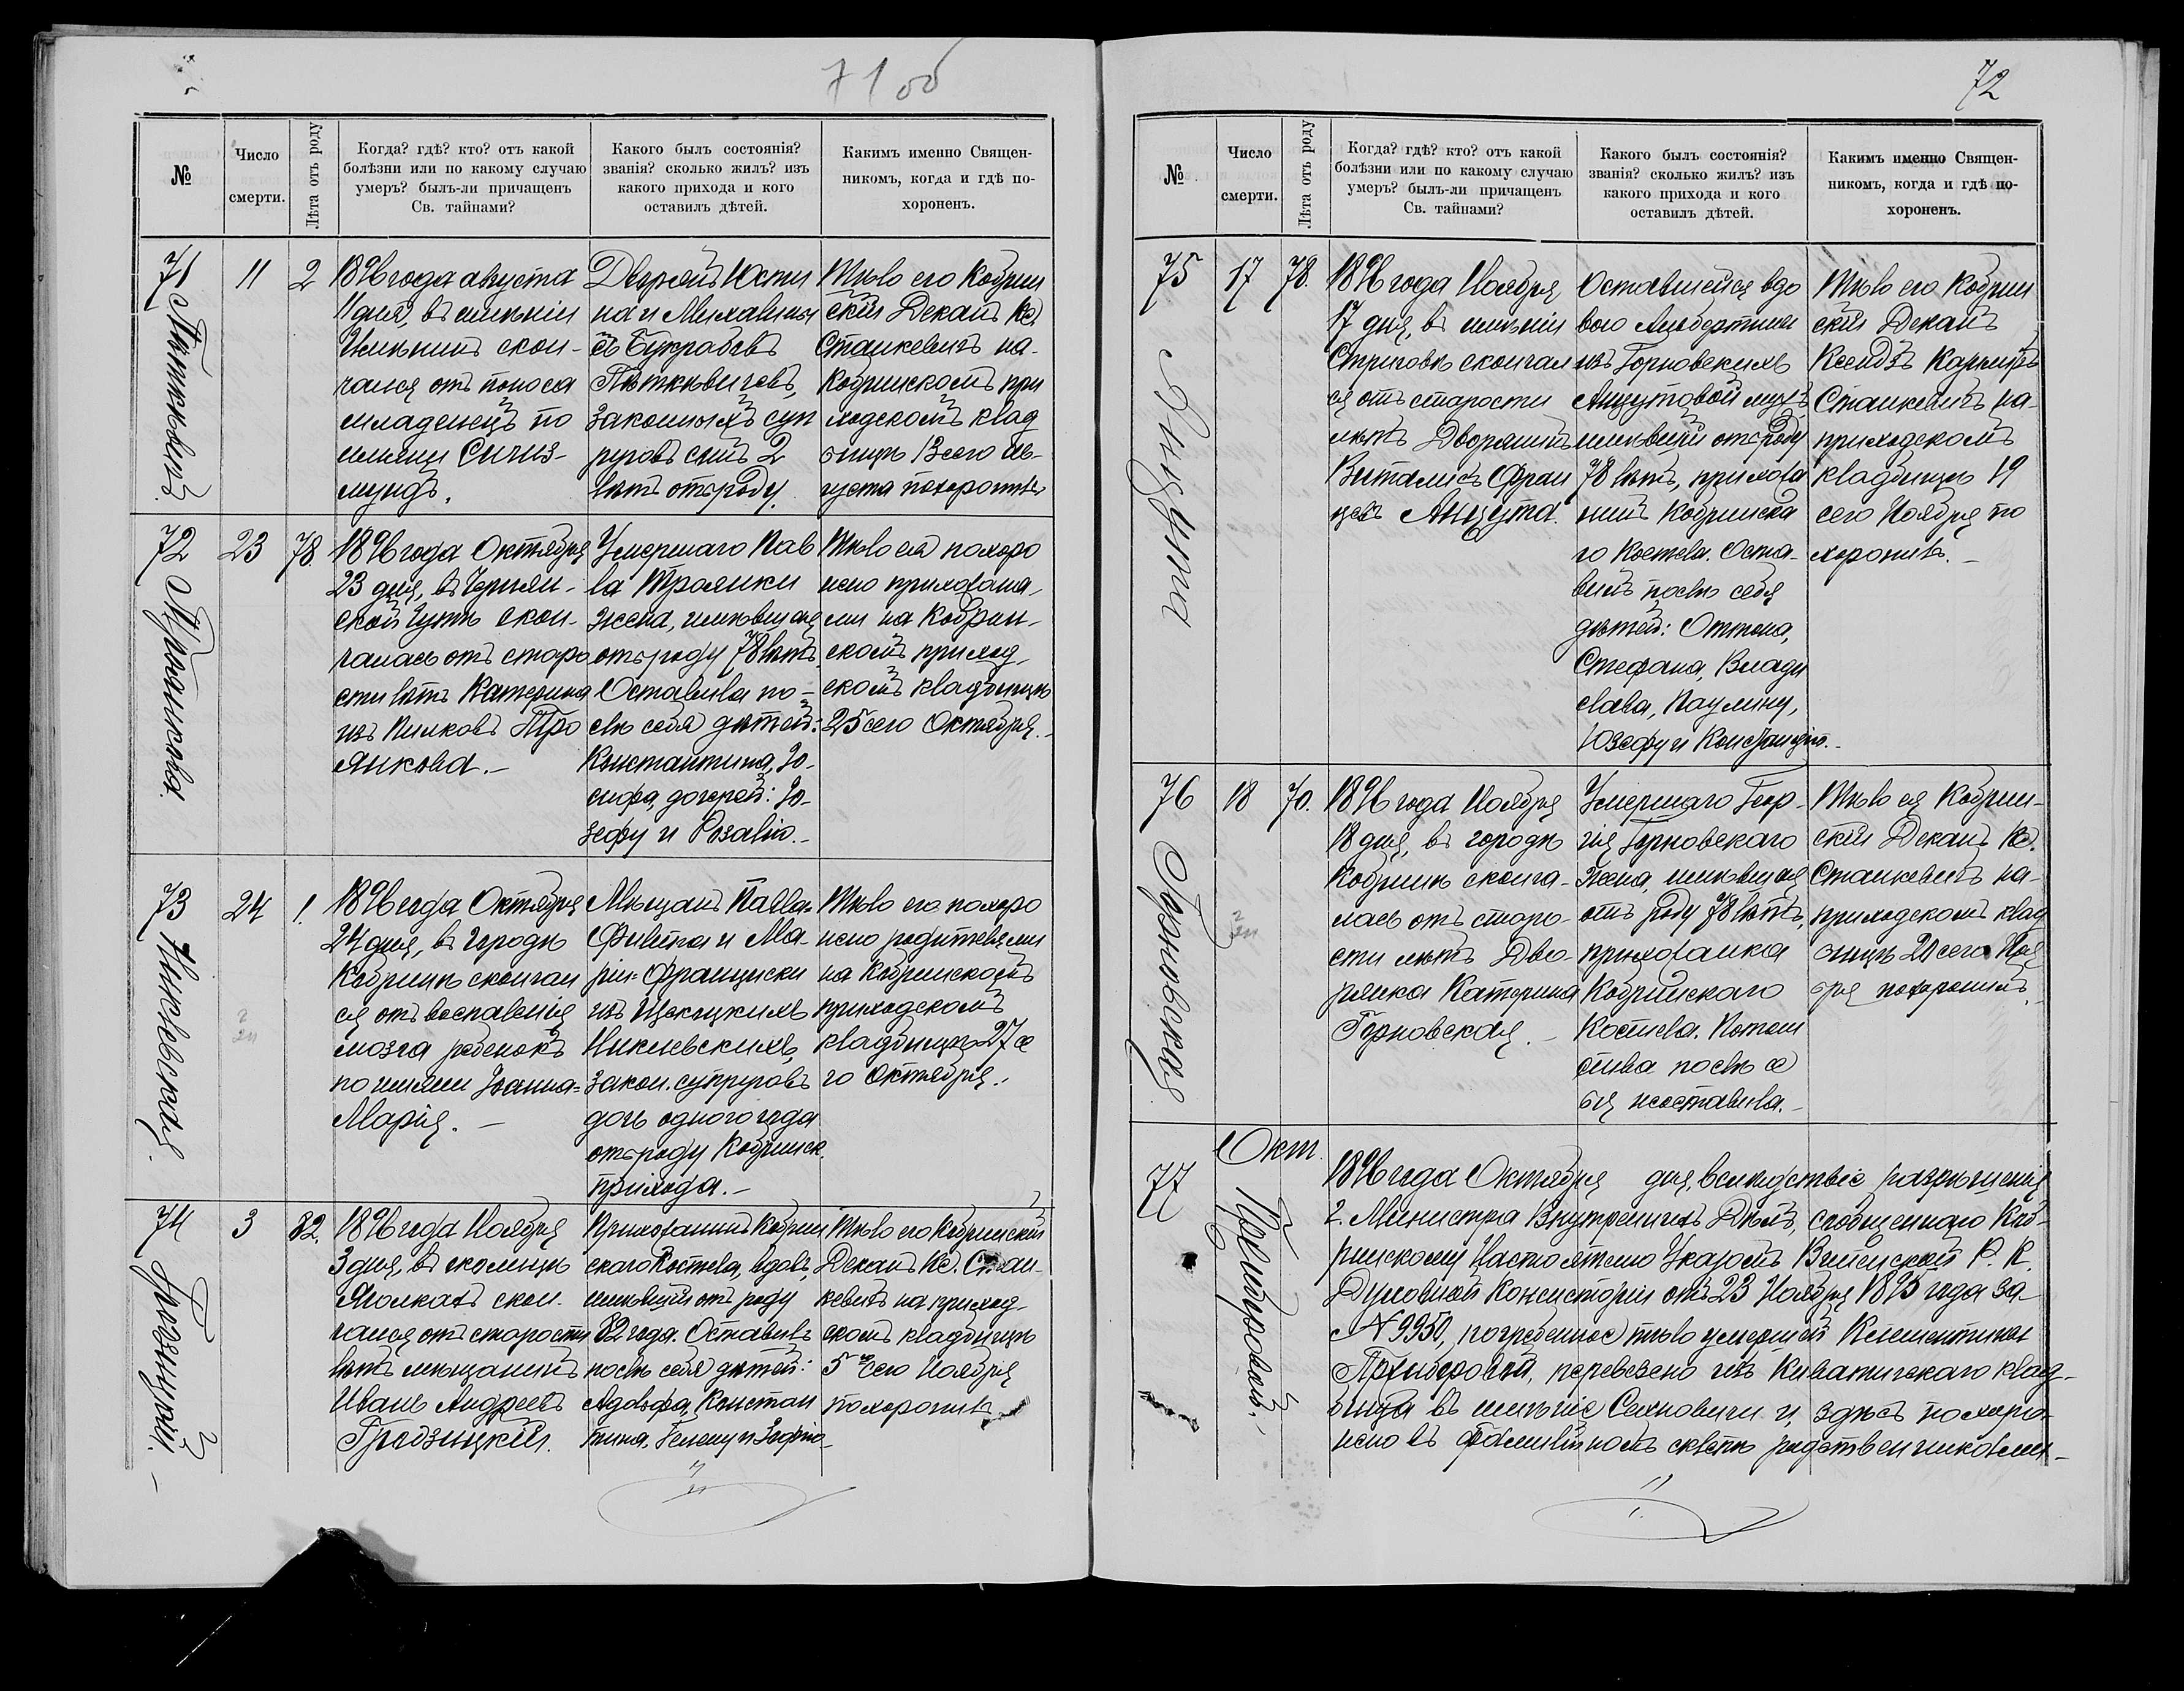 71 об
№
Число
смерти.
Лѣта отъ роду
Когда? гдѣ? кто? отъ какой
болѣзни или по какому случаю
умеръ? былъ-ли причащенъ
Св. тайнами?
Какого былъ состоянія?
званія? сколько жилъ? изъ
какого прихода и кого
оставилъ дѣтей.
Какимъ именно Священ-
никомъ, когда и гдѣ по-
хороненъ.
71
11
2
1896 года августа
11 дня, въ имѣніи
скон-
чался отъ поноса
младенецъ по
имени Сигиз-
мундъ.
Дворянъ Юсти
на и
законныхъ суп
руговъ сынъ 2
лѣтъ отъ роду.
Тѣло его Кобрин
скій Деканъ Кс.
Станкевичъ на
Кобринскомъ при
ходскомъ клад
бищѣ 13 сего Ав-
густа похоронилъ
72
Троянкова.
23
78.
1896 года Октября
23 дня, въ
скон-
чалась отъ старо
сти лѣтъ Катерина
изъ Пилковъ Тро
янкова.-
Умершаго Пав
ла Троянки
жена, имѣвшая
отъ роду 78 лѣтъ.
Оставила по-
слѣ себя дѣтей:
Константина, Іо-
сифа, дочерей: Іо-
зефу и Розалію.-
Тѣло ея похоро
нено прихожана-
ми на Кобрин-
скомъ приход-
скомъ кладбищѣ
25 сего Октября.-
73
24
1.
1896 года Октября
24 дня, въ городѣ
Кобринѣ скончал
ся отъ воспаленія
мозга ребенокъ
по имени Іоанна=
Марія.-
Мѣщанъ Павла=
Филипа и Ма-
ріи=Франциски
изъ
закон. супруговъ
дочь одного года
отъ роду Кобринск.
прихода.-
Тѣло его похоро
нено родителями
на Кобринскомъ
приходскомъ
кладбищѣ 27 се
го Октября.-
74
3
82.
1896 года Ноября
3 дня, въ околицѣ
скон-
чался отъ старости
лѣтъ мѣщанинъ
Иванъ Андреевъ
Гродзицкій.
Прихожанинъ Кобрин
скаго Костела, вдовъ,
имѣвшій отъ роду
82 года. Оставилъ
послѣ себя дѣтей:
Адольфа, Констан
тина, Гелену и Зофію-
Тѣло его Кобринскій
Деканъ Кс. Стан-
кевичъ на приход-
скомъ кладбищѣ
5 сего Ноября
похоронилъ
72
№
Число
смерти.
Лѣта отъ роду
Когда? гдѣ? кто? отъ какой
болѣзни или по какому случаю
умеръ? былъ-ли причащенъ
Св. тайнами?
Какого былъ состоянія?
званія? сколько жилъ? изъ
какого прихода и кого
оставилъ дѣтей.
Какимъ именно Священ-
никомъ, когда и гдѣ по-
хороненъ.
75
Анцута
17
78.
1896 года Ноября
17 дня, въ имѣніи
Стриговѣ скончал
ся отъ старости
лѣтъ Дворянинъ
Виталисъ Фран
цевъ Анцута.
Оставшейся вдо
вою
изъ Горновскихъ
Анцутовой мужъ
имѣвшій отъ роду
78 лѣтъ, прихожа
нинъ Кобринска
го Костела. Оста-
вилъ послѣ себя
дѣтей: Оттона,
Стефана, Влади
слава, Паулину,
Юзефу и Констанцію.-
Тѣло его Кобрин
скій Деканъ
Ксендзъ Казиміръ
Станкевичъ на
приходскомъ
кладбищѣ 19
сего Ноября по
хоронилъ.-
76
Горновская
18
70.
1896 года Ноября
18 дня, въ городѣ
Кобринѣ сконча-
лась отъ старо-
сти лѣтъ Дво-
рянка Катерина
Горновская.-
Умершаго Геор-
гія Горновскаго
жена, имѣвшая
отъ роду 78 лѣтъ,
прихожанка
Кобринскаго
Костела. Потом
ства послѣ се
бя неоставила.-
Тѣло ея Кобрин-
скій Деканъ Кс.
Станкевичъ на
приходскомъ клад
бищѣ 20 сего Ноя
бря похоронилъ.
77
Окт.
1896 года Октября дня, вслѣдствіе разрѣшенія
г. Министра Внутреннихъ Дѣлъ, сообщеннаго Коб-
ринскому Настоятелю Указомъ Виленской Р. К.
Духовной Консисторіи отъ 23 Ноября 1895 года за
№ 9950, погребенное тѣло умершей Клементины
перевезено изъ Киватическаго клад-
бища въ имѣніе Сехновичи и здѣсь похоро-
нено въ фамильномъ склепѣ родственниками-